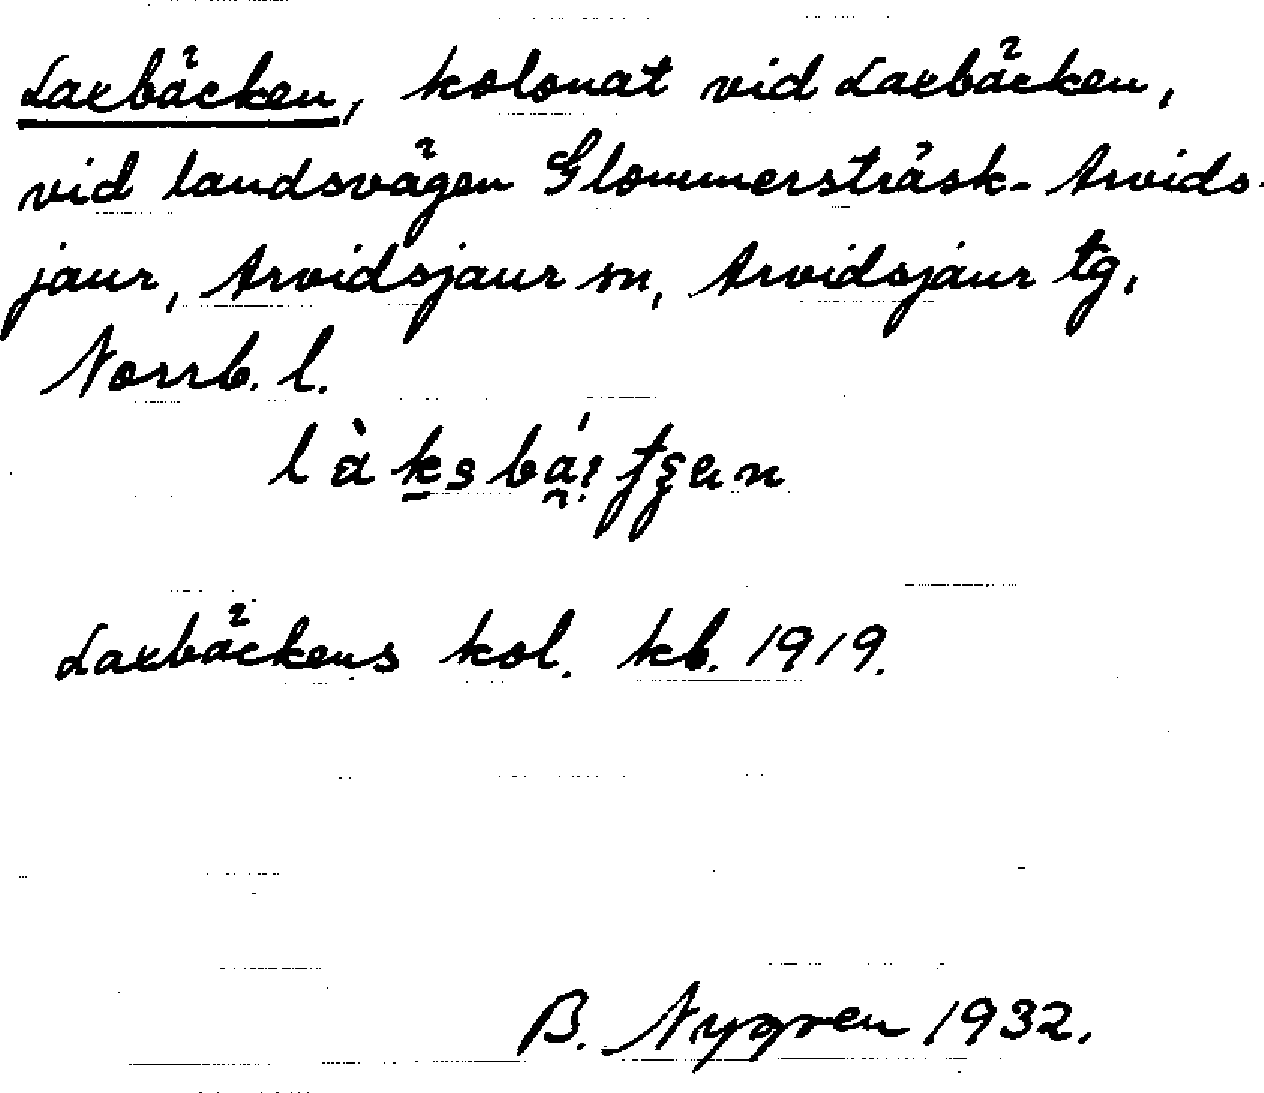 Laxbäcken, kolonat vid Laxbäcken,
vid landsvägen Glommersträsk-Arvids-
jaur, Arvidsjaur sn, Arvidsjaur tg,
Norrb. l.
Laxbäckens kol. kb. 1919.
B. Nygren 1932.